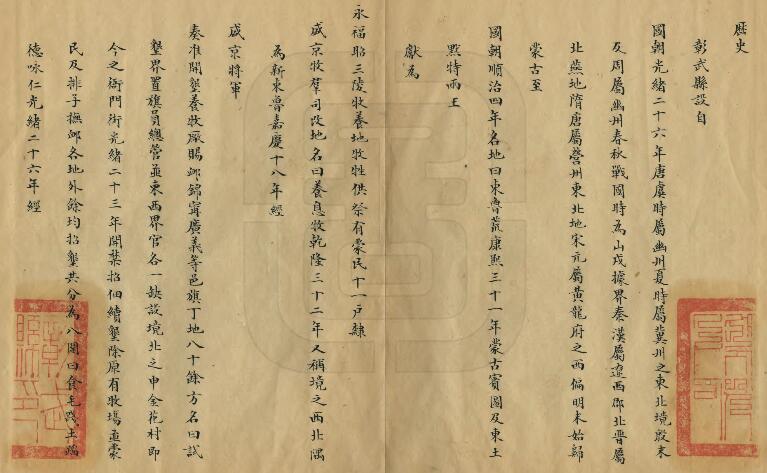 歷史
彰武縣設自
國朝光緒二十六年唐虞時屬幽州夏時屬冀州之東北境殷末
及周屬幽州春秋戰國時為山戎據界秦漢屬遼西郡北晉屬
北燕地隋唐屬營州東北地宋元屬黃龍府之西偏明末始歸
蒙古至
國朝順治四年名地曰東魯荒康熙三十一年蒙古賓圖及東土
默特兩王
獻為
永福昭三陵牧養地牧牲供祭有蒙民十一戶隸
盛京牧羣司改地名曰養息牧乾隆三十二年又稱境之西北隅
為新東魯嘉慶十八年經
盛京將軍
奏准開墾養牧厰賜鄉錦甯廣義等邑旗丁地八十餘方名曰試
墾界置旗員總管並東西界官各一缺設境北之申金花村即
今之衙門街光緒二十三年開禁招佃續墾除原有牧場並蒙
民及排子撫卹各地外餘均招墾共分為八開曰食毛踐土瑞
德咏仁光緒二十六年經